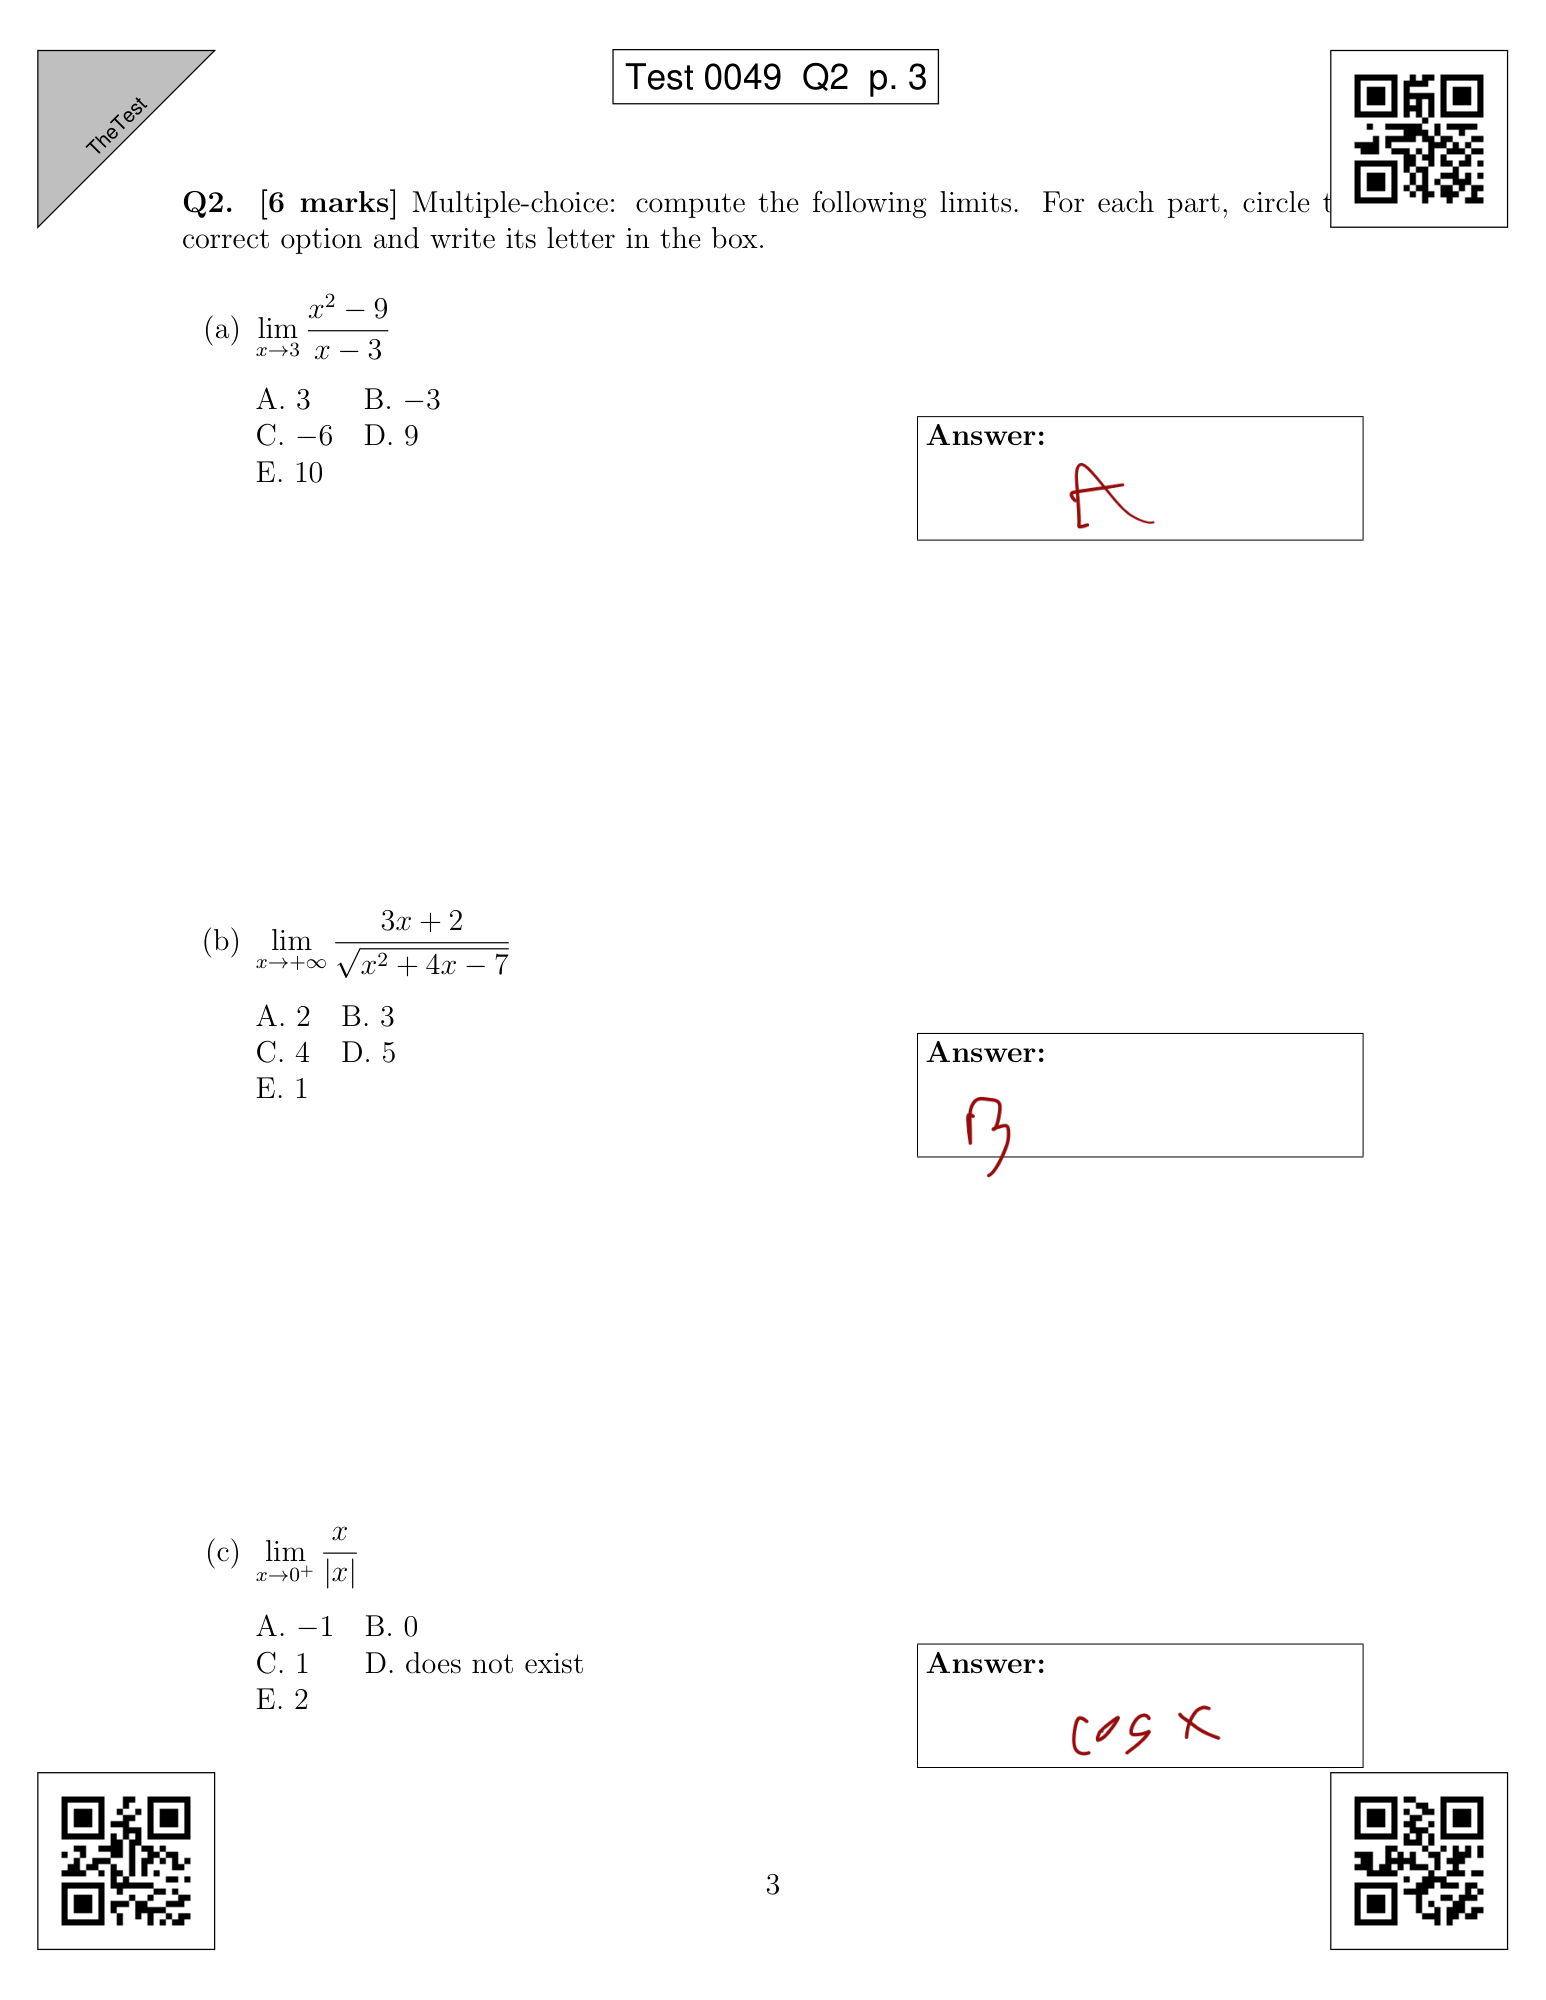 TheTest
Test 0049 Q2 p. 3
Q2. [6 marks] Multiple-choice: compute the following limits. For each part, circle t
correct option and write its letter in the box.
(a) lim x→3 (x² − 9)/(x − 3)
A. 3 B. −3
C. −6 D. 9
E. 10
Answer:
A
(b) lim x→+∞ (3x + 2)/√(x² + 4x − 7)
A. 2 B. 3
C. 4 D. 5
E. 1
Answer:
B
(c) lim x→0⁺ x/|x|
A. −1 B. 0
C. 1 D. does not exist
E. 2
Answer:
cos x
3